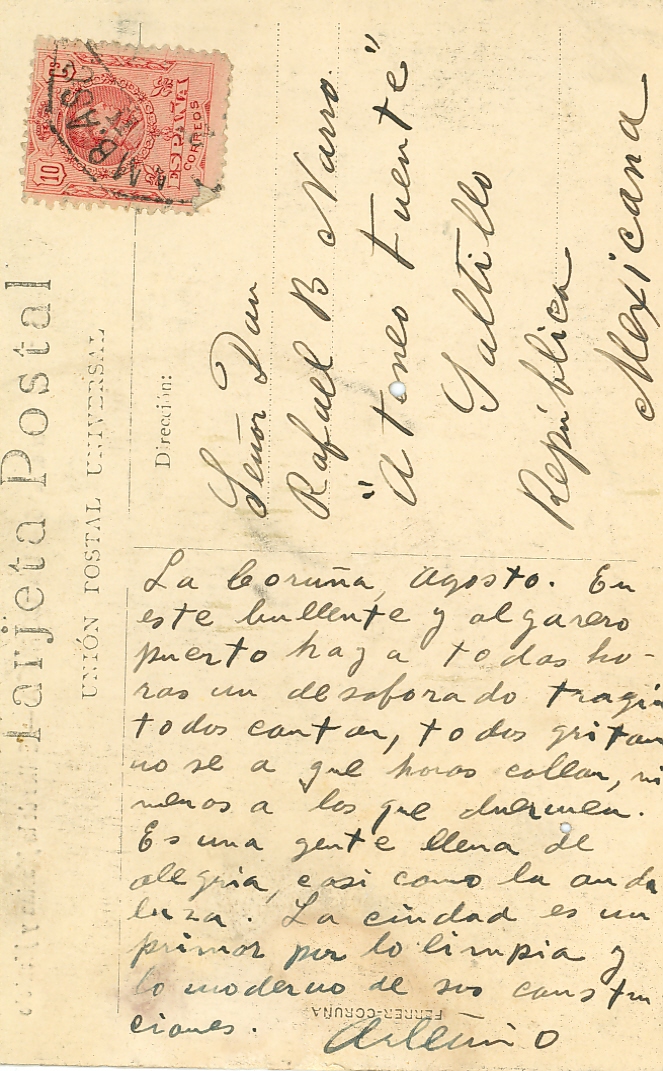 Tarjeta Postal
UNIÓN POSTAL UNIVERSAL
10 CTS
ESPAÑA
CORREOS
Dirección:
Señor Don
Rafael B Narro.
"Ateneo Fuente"
Saltillo
República
Mexicana
La Coruña, Agosto. En
este bullente y algarero
puerto hay a todas ho-
ras un desaforado tragín
todos cantan, todos gritan
no se a que horas callan, ni
menos a los que duermen.
Es una gente llena de
alegria, casi como la anda
luza. La ciudad es un
primor por lo limpia y
lo moderno de sus constru
ciones.
FERRER-CORUÑA